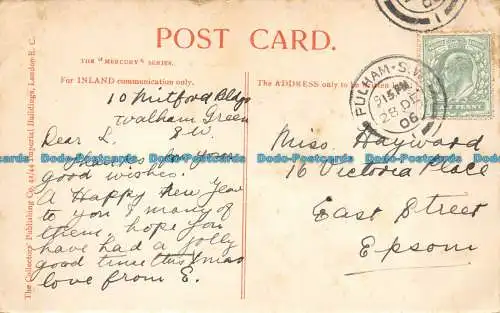 POST CARD.
THE "MERCURY" SERIES.
For INLAND communication only.
The ADDRESS only to be
The Collectors' Publishing Co., 42/44 Imperial Buildings, London E. C.
10 Mitford Bldgs
Walham Green
S.W.
Dear L.
for your
good wishes.
A Happy New Year
to you & many of
them, hope you
have had a jolly
good time this Xmas
love from E.
Miss. Hayward
16 Victoria Place
East Street
Epsom
FULHAM · S.W.
9 15 PM
28 DE
06
PENNY
Bodo-Postcards